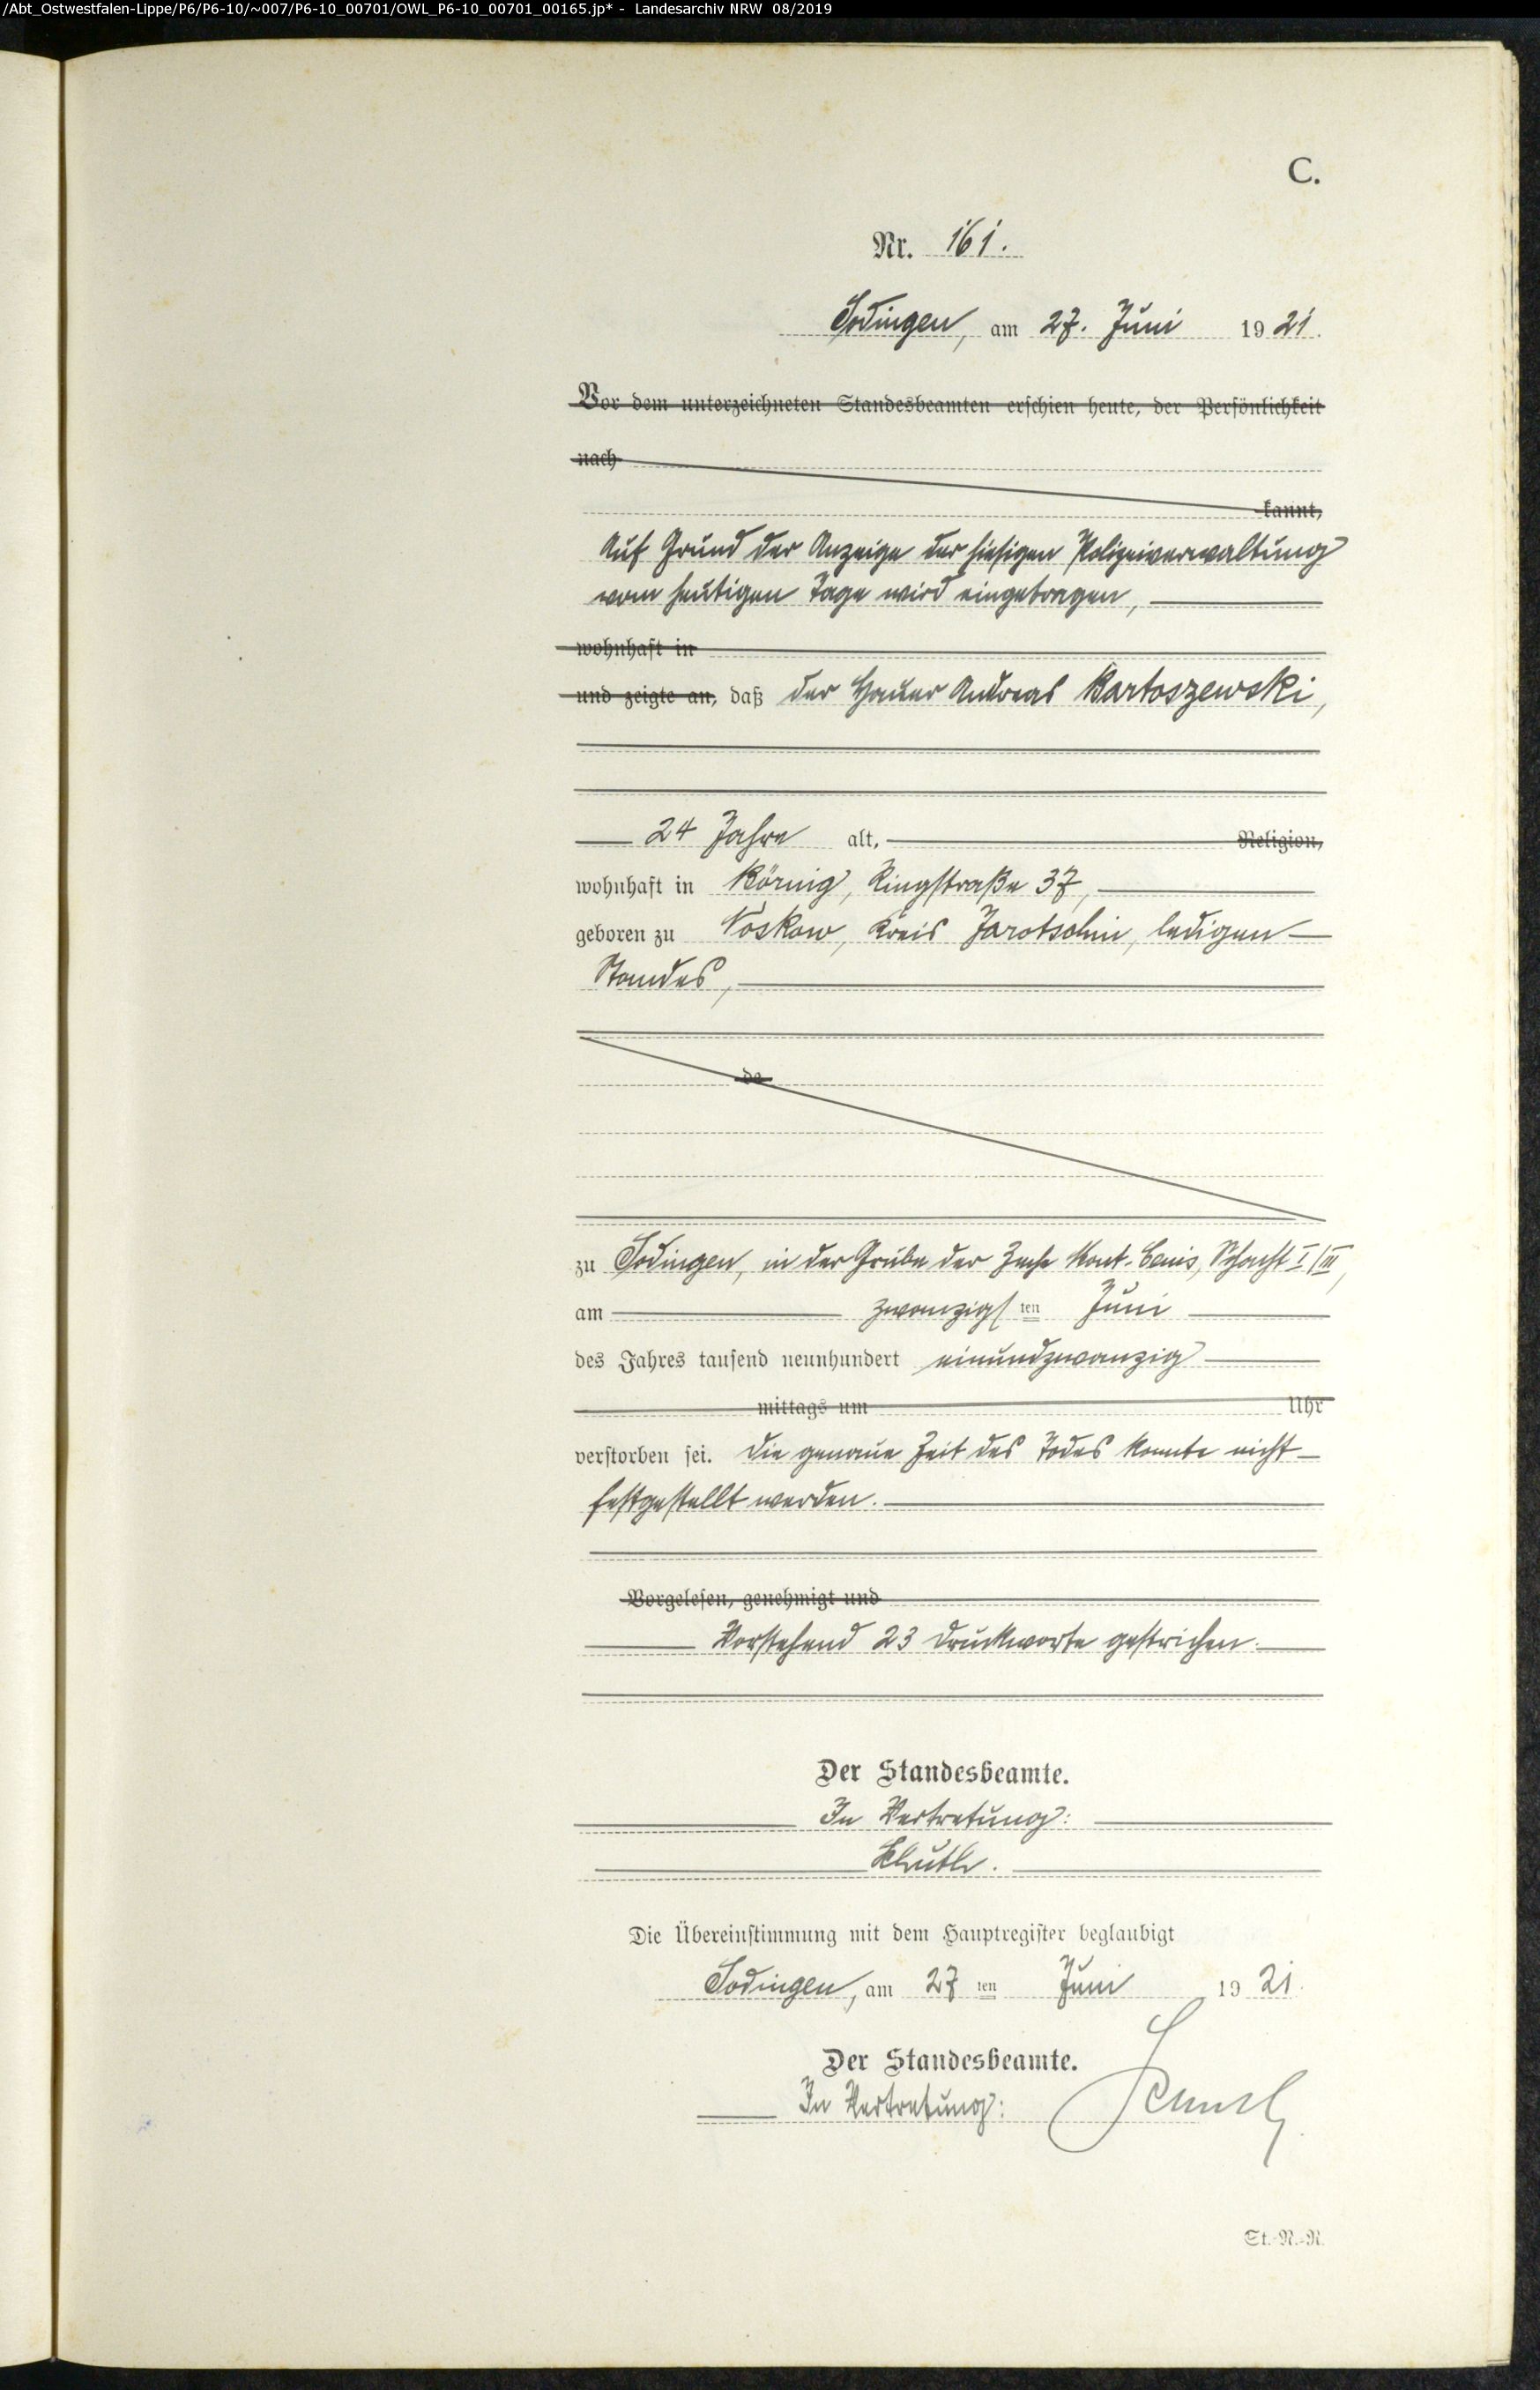 /Abt_Ostwestfalen-Lippe/P6/P6-10/~007/P6-10_00701/OWL_P6-10_00701_00165.jp* - Landesarchiv NRW 08/2019
C.
Nr. 161.
Sodingen, am 27. Juni 1921.
Vor dem unterzeichneten Standesbeamten erschien heute, der Persönlichkeit
nach
kannt,
Auf Grund der Anzeige der hiesigen Polizeiverwaltung
vom heutigen Tage wird eingetragen,
wohnhaft in
und zeigte an, daß der Hauer Andreas Bartoszewski,
24 Jahre alt, Religion,
wohnhaft in Börnig, Ringstraße 37,
geboren zu Noskow, Kreis Jarotschin, ledigen
Standes,
de
zu Sodingen, in der Grube der Zeche Mont-Cenis, Schacht I/III,
am zwanzigsten Juni
des Jahres tausend neunhundert einundzwanzig
mittags um Uhr
verstorben sei. Die genaue Zeit des Todes konnte nicht
festgestellt werden.
Vorgelesen, genehmigt und
Vorstehend 23 Druckworte gestrichen.
Der Standesbeamte.
In Vertretung:
Die Übereinstimmung mit dem Hauptregister beglaubigt
Sodingen, am 27 ten Juni 1921.
Der Standesbeamte.
In Vertretung:
St.-N.-R.